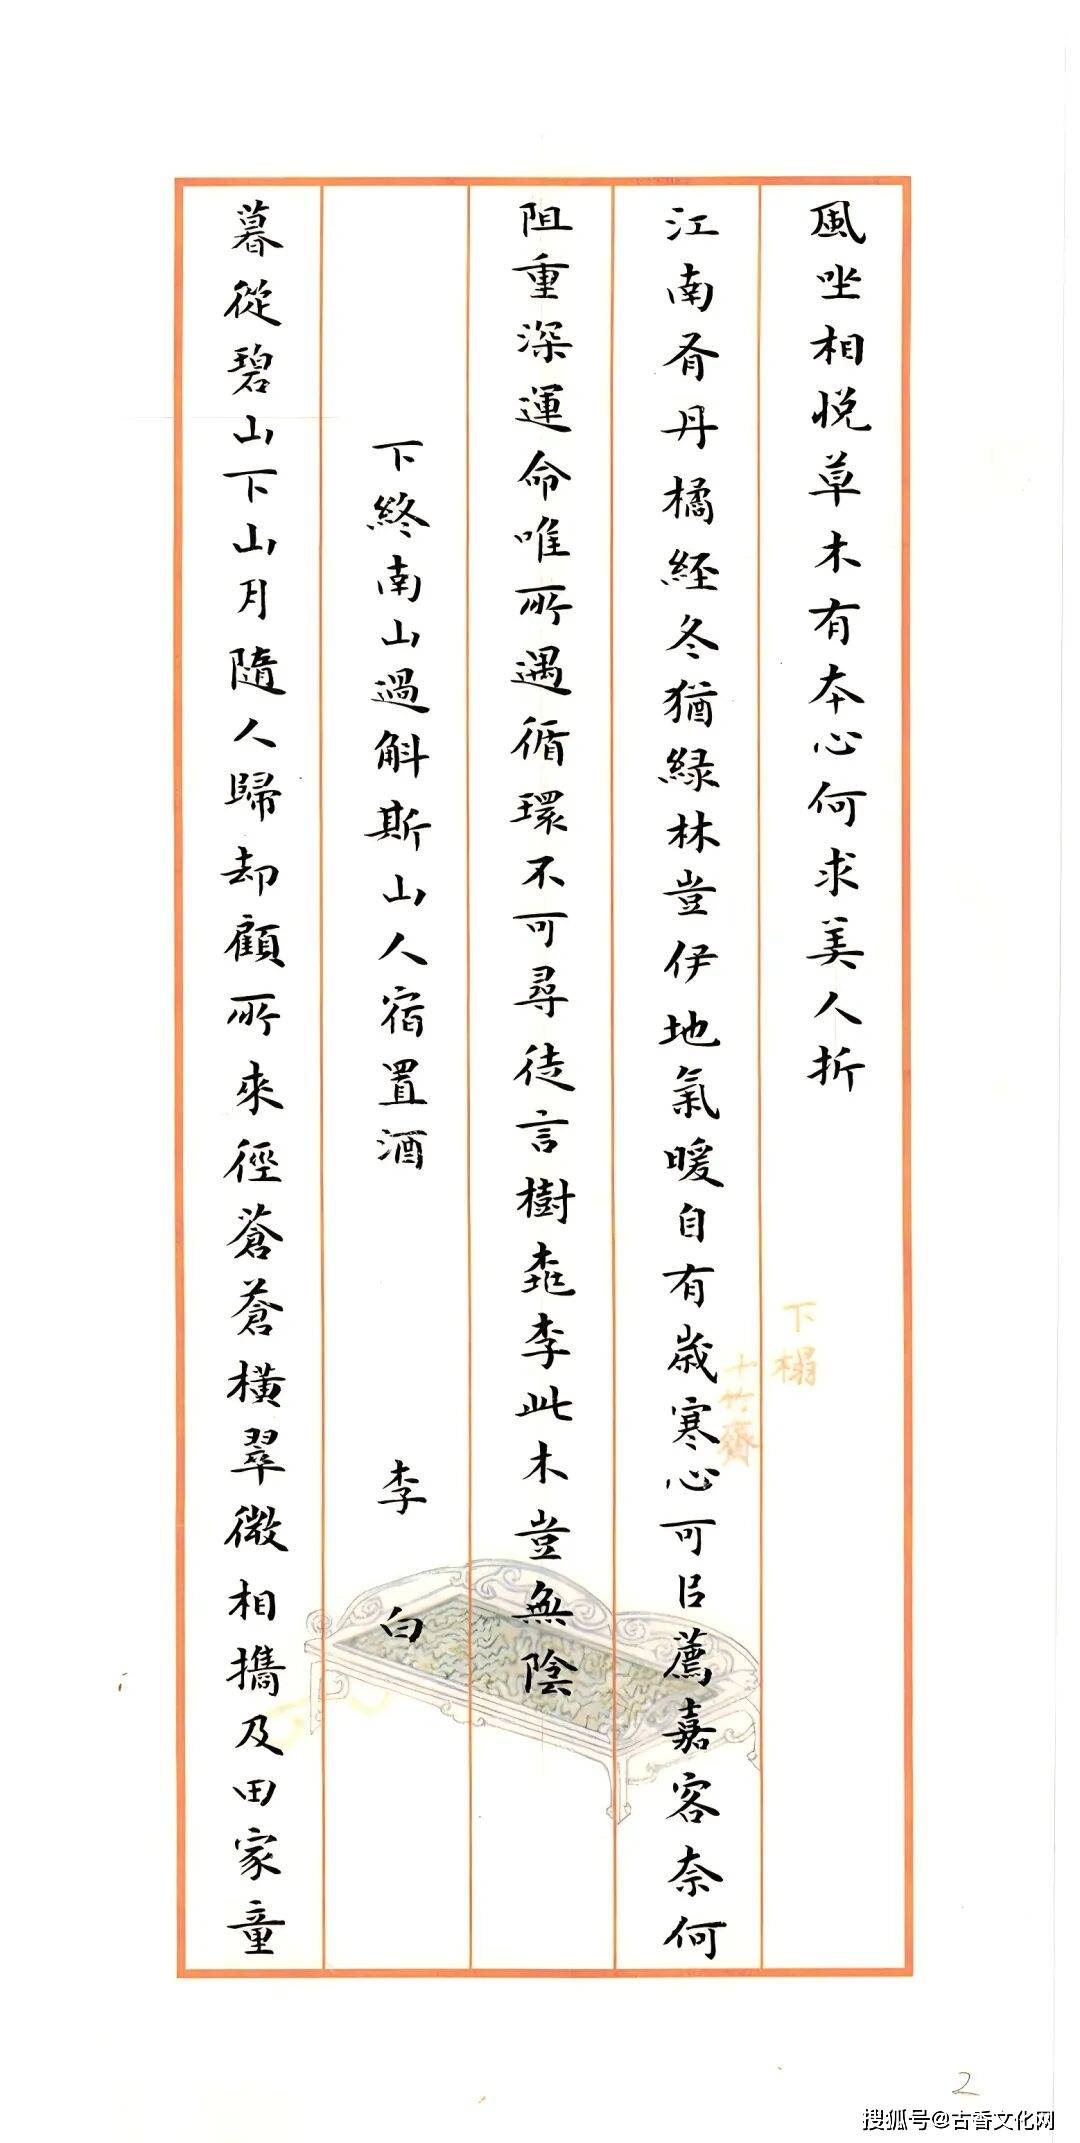 風坐相悅草木有本心何求美人折
江南有丹橘經冬猶緑林豈伊地氣暖自有歲寒心可以薦嘉客奈何
阻重深運命唯所遇循環不可尋徒言樹桃李此木豈無陰
下終南山過斛斯山人宿置酒 李白
暮從碧山下山月隨人歸却顧所來徑蒼蒼橫翠微相攜及田家童
下榻
十竹齋
2
搜狐号@古香文化网